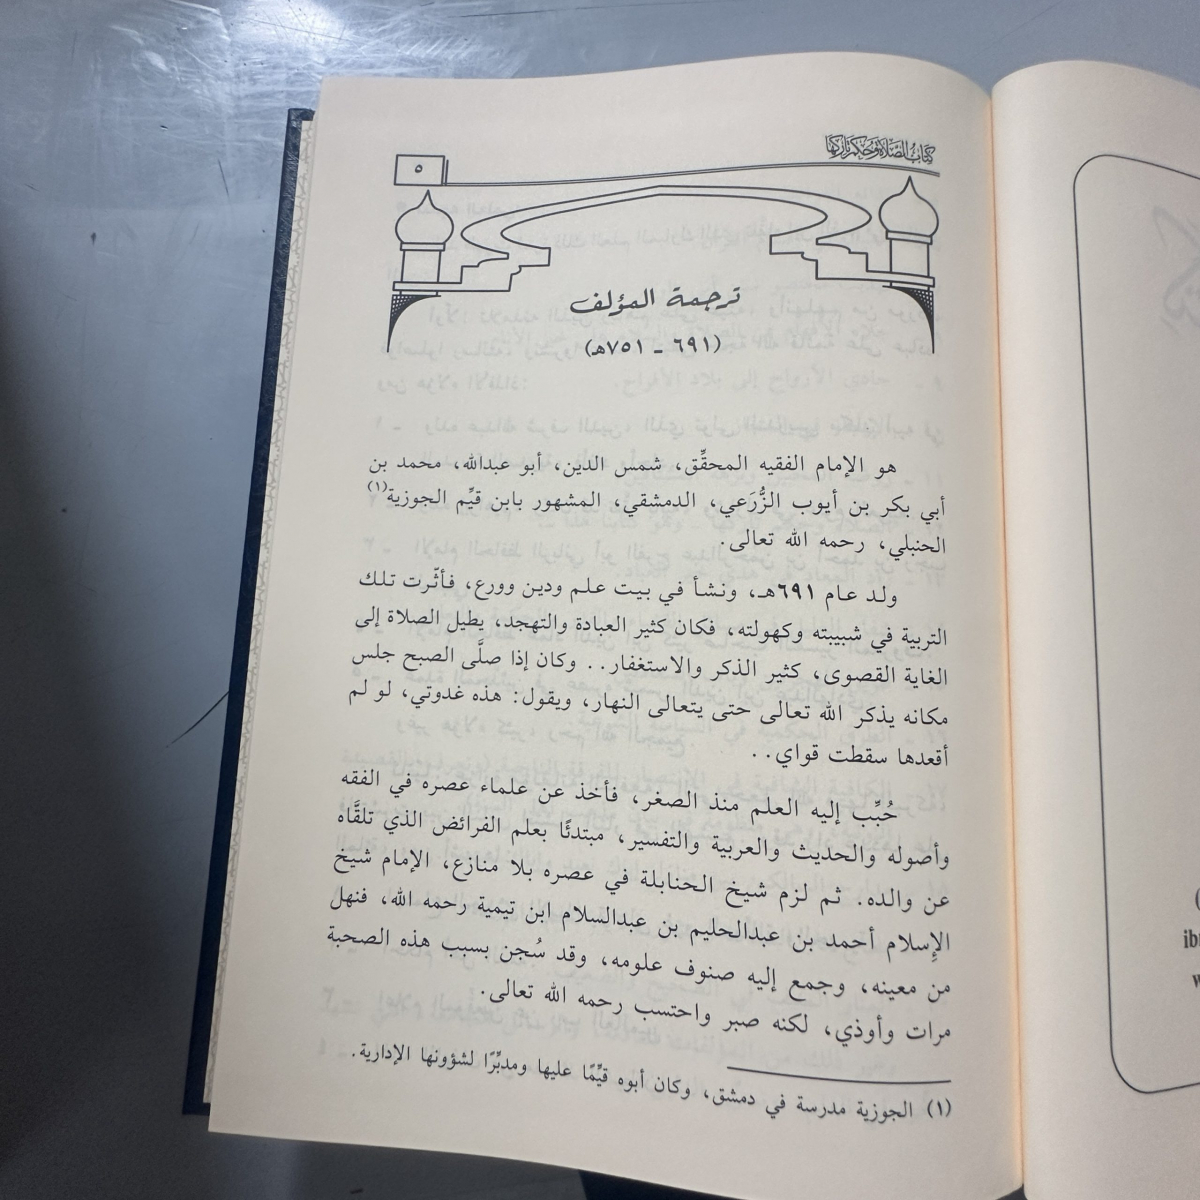 كتاب الصلاة وحكم تاركها
٥
ترجمة المؤلف
(٦٩١ - ٧٥١هـ)
هو الإمام الفقيه المحقِّق، شمس الدين، أبو عبدالله، محمد بن
أبي بكر بن أيوب الزُّرَعي، الدمشقي، المشهور بابن قيِّم الجوزية(١)
الحنبلي، رحمه الله تعالى.
ولد عام ٦٩١هـ، ونشأ في بيت علم ودين وورع، فأثّرت تلك
التربية في شبيبته وكهولته، فكان كثير العبادة والتهجد، يطيل الصلاة إلى
الغاية القصوى، كثير الذكر والاستغفار.. وكان إذا صلَّى الصبح جلس
مكانه يذكر الله تعالى حتى يتعالى النهار، ويقول: هذه غدوتي، لو لم
أقعدها سقطت قواي..
حُبِّب إليه العلم منذ الصغر، فأخذ عن علماء عصره في الفقه
وأصوله والحديث والعربية والتفسير، مبتدئًا بعلم الفرائض الذي تلقَّاه
عن والده. ثم لزم شيخ الحنابلة في عصره بلا منازع، الإمام شيخ
الإِسلام أحمد بن عبدالحليم بن عبدالسلام ابن تيمية رحمه الله، فنهل
من معينه، وجمع إليه صنوف علومه، وقد سُجن بسبب هذه الصحبة
مرات وأوذي، لكنه صبر واحتسب رحمه الله تعالى.
(١) الجوزية مدرسة في دمشق، وكان أبوه قيِّمًا عليها ومدبِّرًا لشؤونها الإدارية.